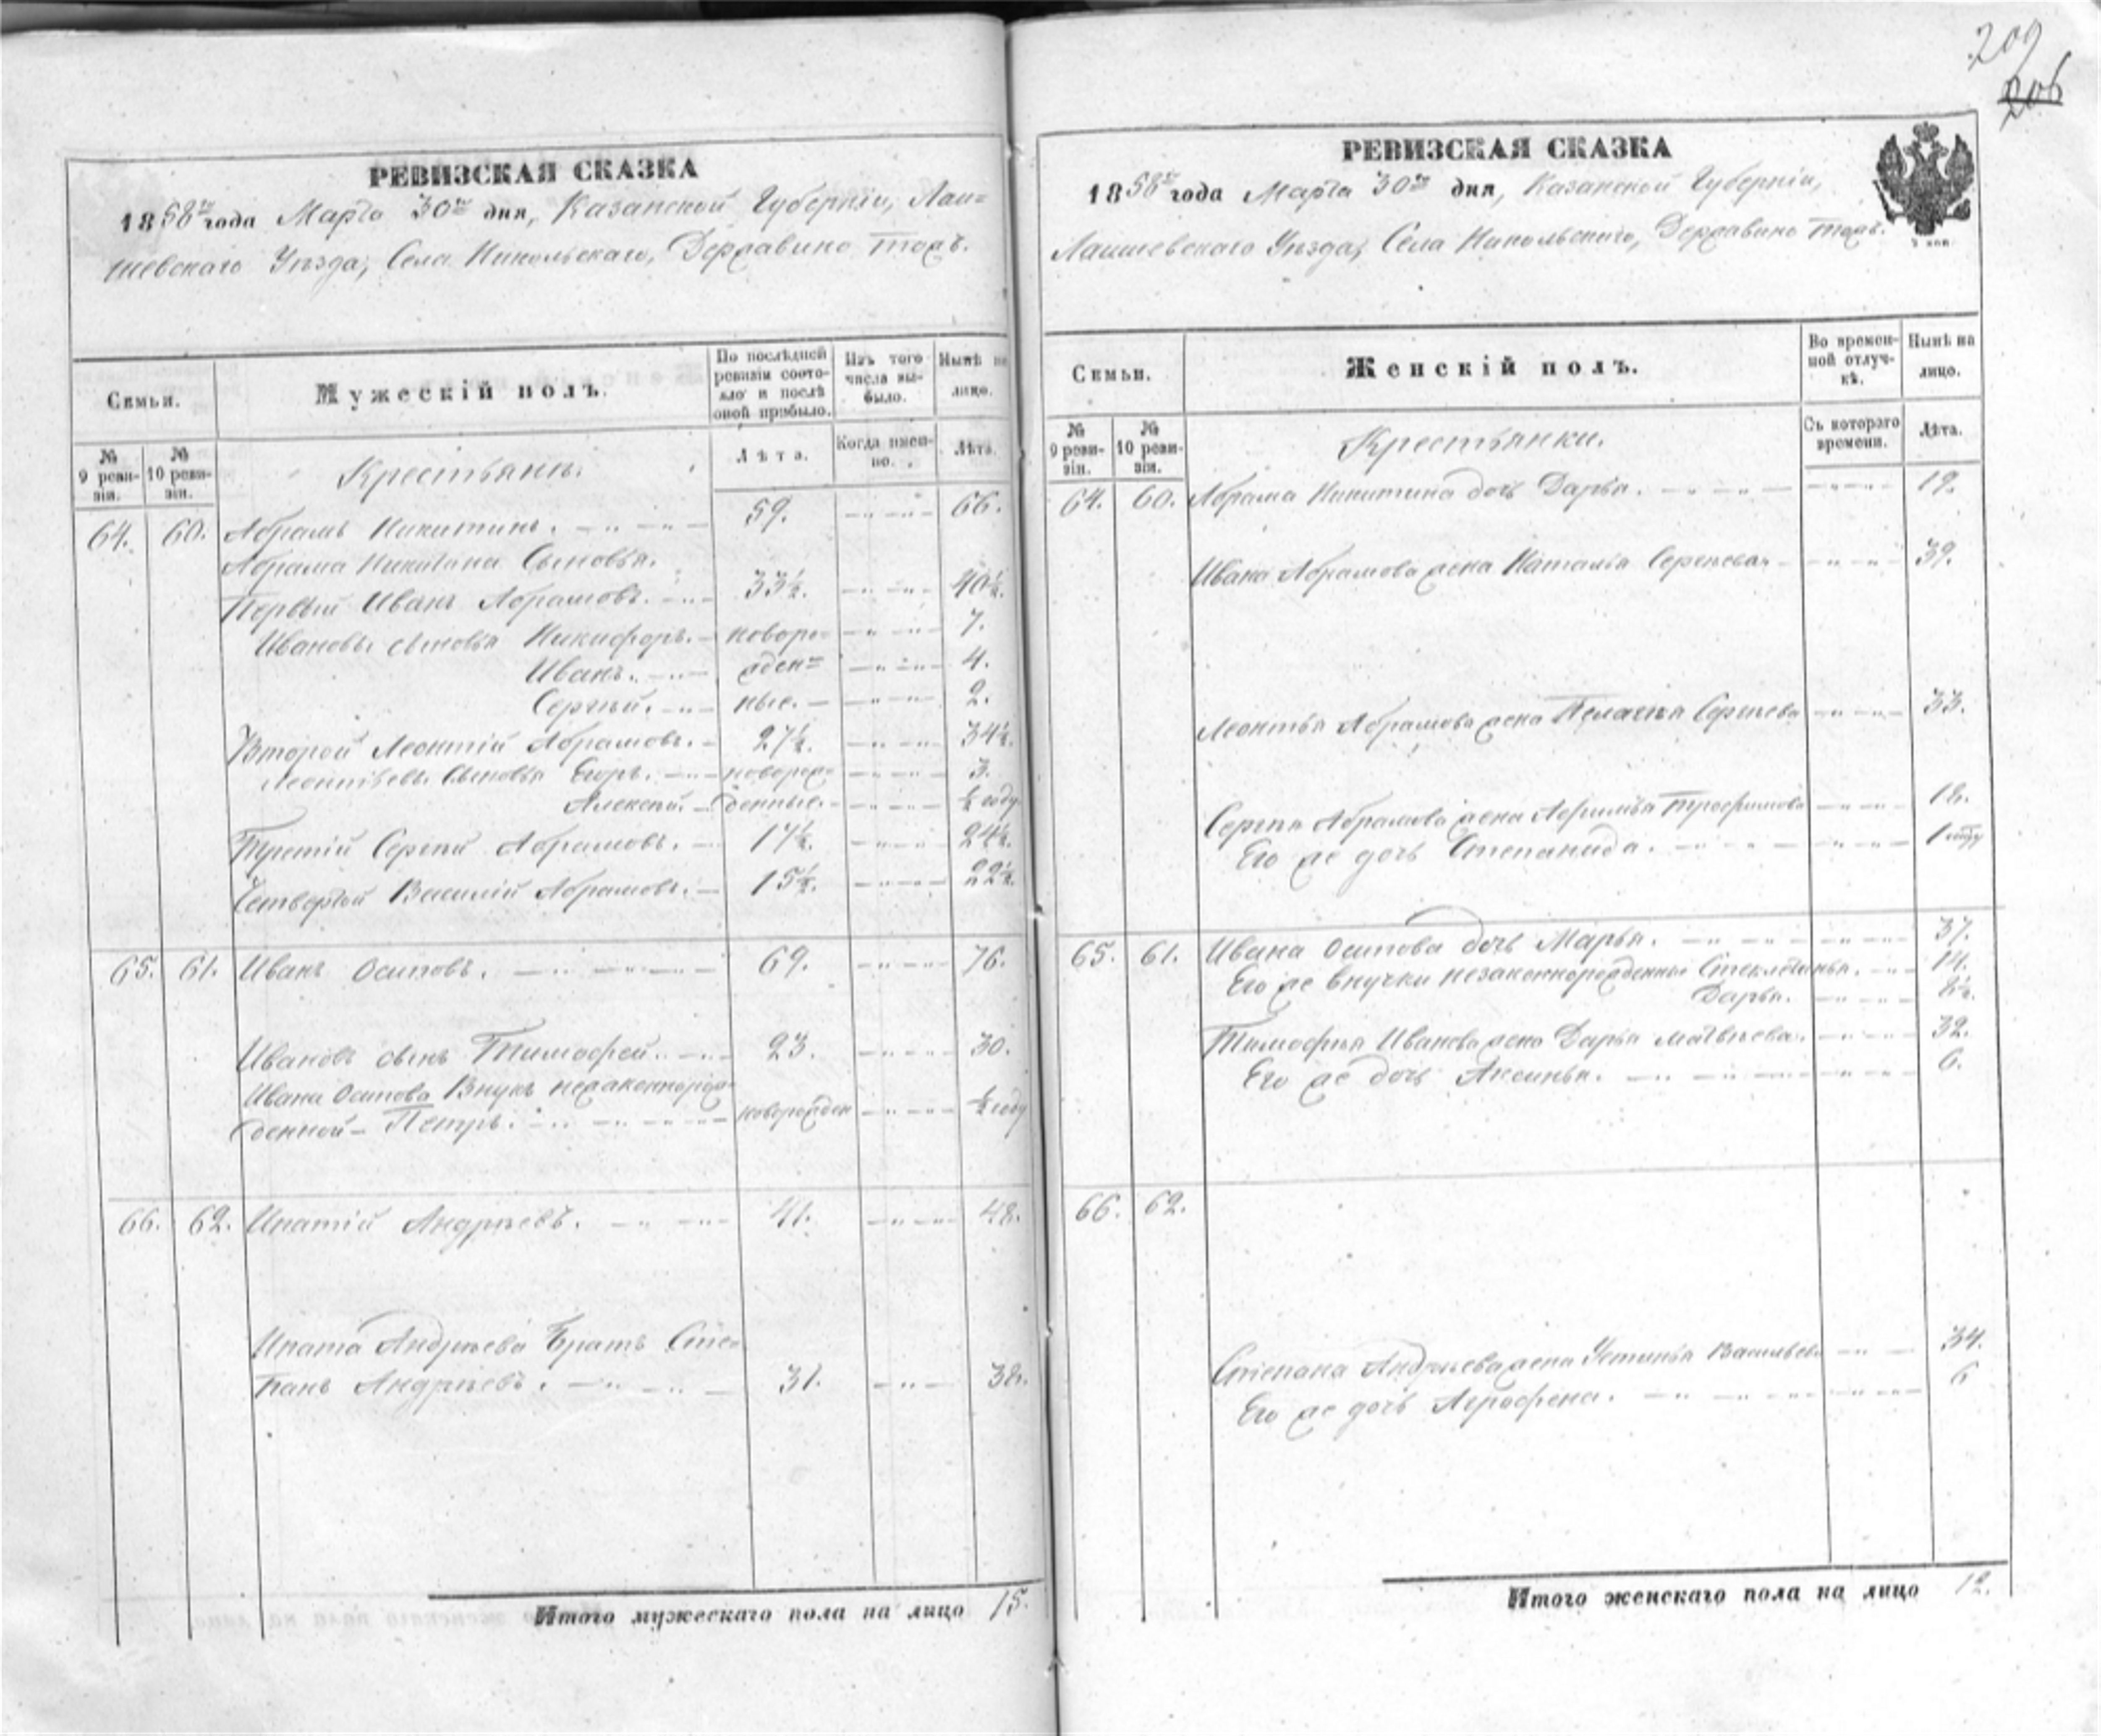 209
206
РЕВИЗСКАЯ СКАЗКА
1858го года Марта 30го дня, Казанской Губерніи, Лаи=
шевскаго Уѣзда, Села Никольскаго, Державино тожъ.
Семьи.
Мужескій полъ.
По послѣдней ревизіи состояло и послѣ оной прибыло.
Изъ того числа выбыло.
Нынѣ на лицо.
№ 9 ревизіи.
№ 10 ревизіи.
Крестьяне.
Лѣта.
Когда именно.
Лѣта.
64. 60. Абрамъ Никитинъ. 59. 66.
Абрама Никитина Сыновья.
Первый Иванъ Абрамовъ. 33½. 40½.
Ивановы сыновья Никифоръ. новоро= 7.
Иванъ. жден= 4.
Сергѣй. ные. 2.
Второй Леонтій Абрамовъ. 27½. 34½.
Леонтьевы Сыновья Егоръ. новорож= 3.
Алексѣй. денные. ½ году.
Третій Сергѣй Абрамовъ. 17½. 24½.
Четвертой Василій Абрамовъ. 15½. 22½.
65. 61. Иванъ Осиповъ. 69. 76.
Ивановъ сынъ Тимофей. 23. 30.
Ивана Осипова Внукъ незаконнорож=
денной Петръ. новорожден ½ году
66. 62. Ипатій Андреевъ. 41. 48.
Ипата Андреева Братъ Сте=
панъ Андреевъ. 31. 38.
Итого мужескаго пола на лицо 15.
РЕВИЗСКАЯ СКАЗКА
1858го года Марта 30го дня, Казанской Губерніи,
Лаишевскаго Уѣзда, Села Никольскаго, Державино тожъ.
Семьи.
Женскій полъ.
Во временной отлучкѣ.
Нынѣ на лицо.
№ 9 ревизіи.
№ 10 ревизіи.
Крестьянки.
Съ котораго времени.
Лѣта.
64. 60. Абрама Никитина дочь Дарья. 19.
Ивана Абрамова жена Наталья Сергеева 39.
Леонтья Абрамова жена Пелагея Сергеева 33.
Сергѣя Абрамова жена Афимья Трофимова 18.
Его же дочь Степанида. 1 году
65. 61. Ивана Осипова дочь Марья. 37.
Его же внучки незаконнорожденныя 14.
Дарья.
Тимофея Иванова жена Дарья Матвеева. 32.
Его же дочь Аксинья. 6.
66. 62.
Степана Андреева жена Устинья Васильева 34.
Его же дочь Агрофена. 6
Итого женскаго пола на лицо 12.